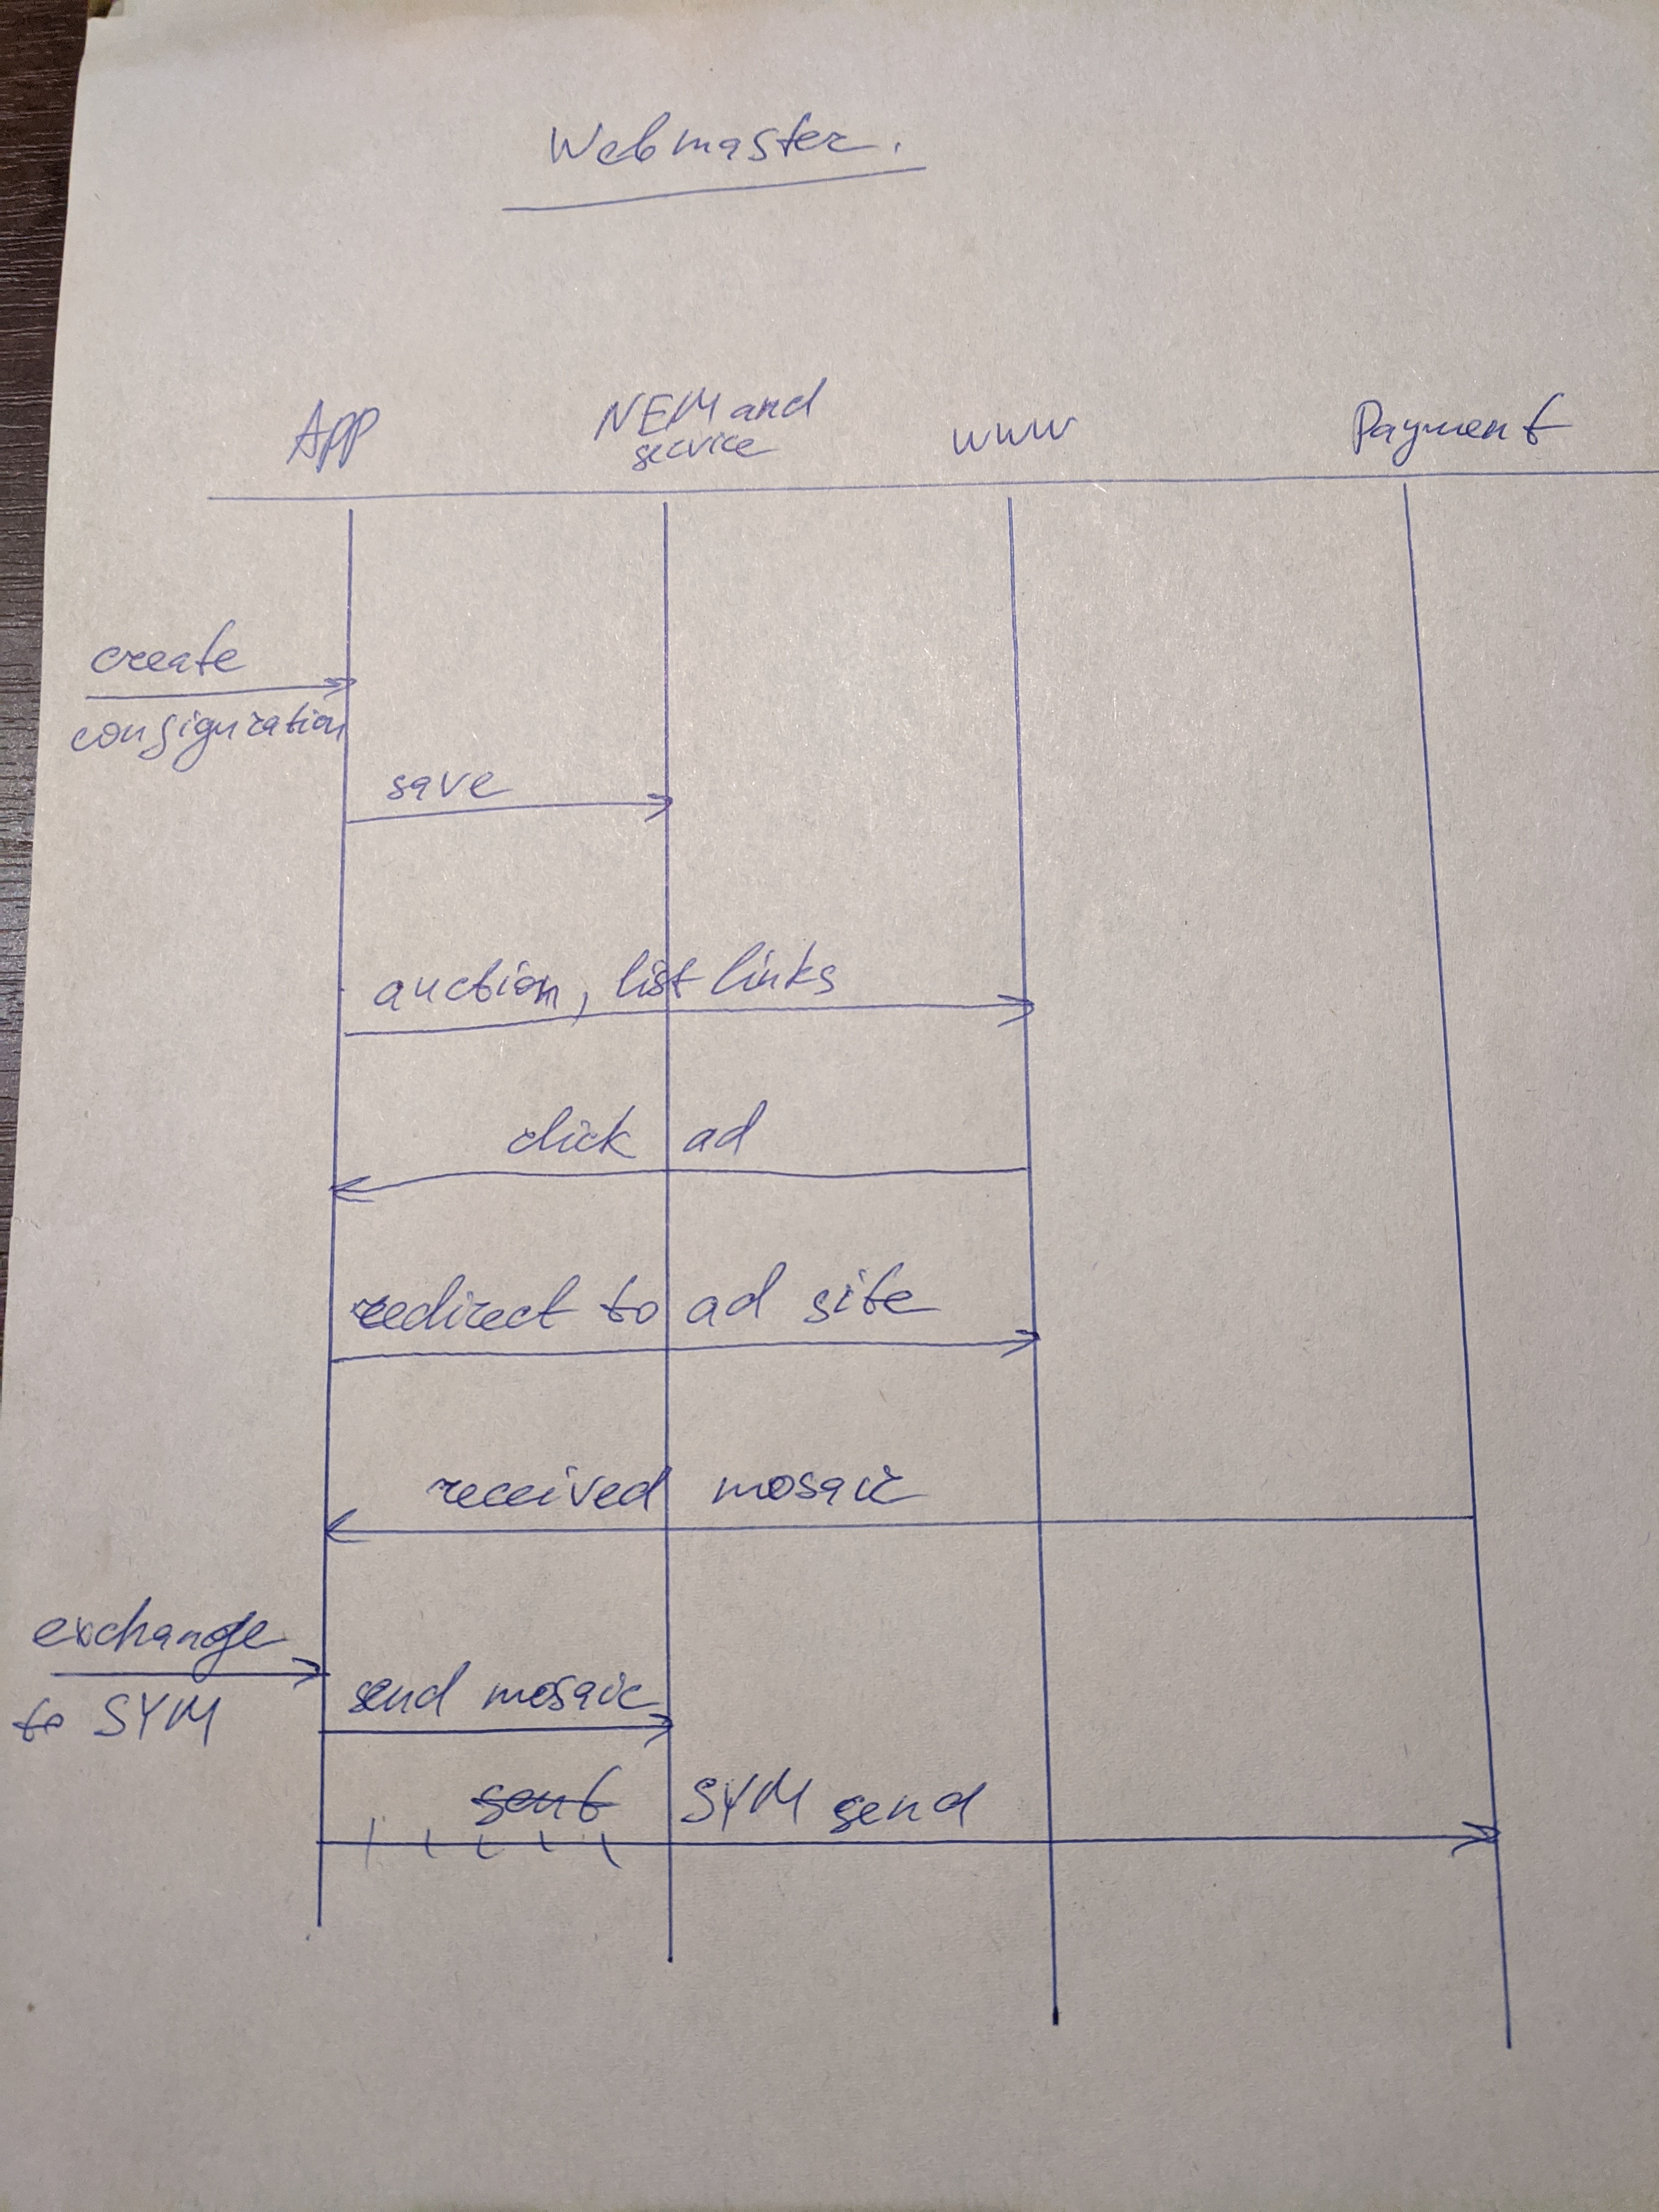 Webmaster.
App
NEM and
service
www
Payment
create
configuration
save
auction, list links
click ad
redirect to ad site
received mosaic
exchange
to SYM
send mosaic
sent SYM send